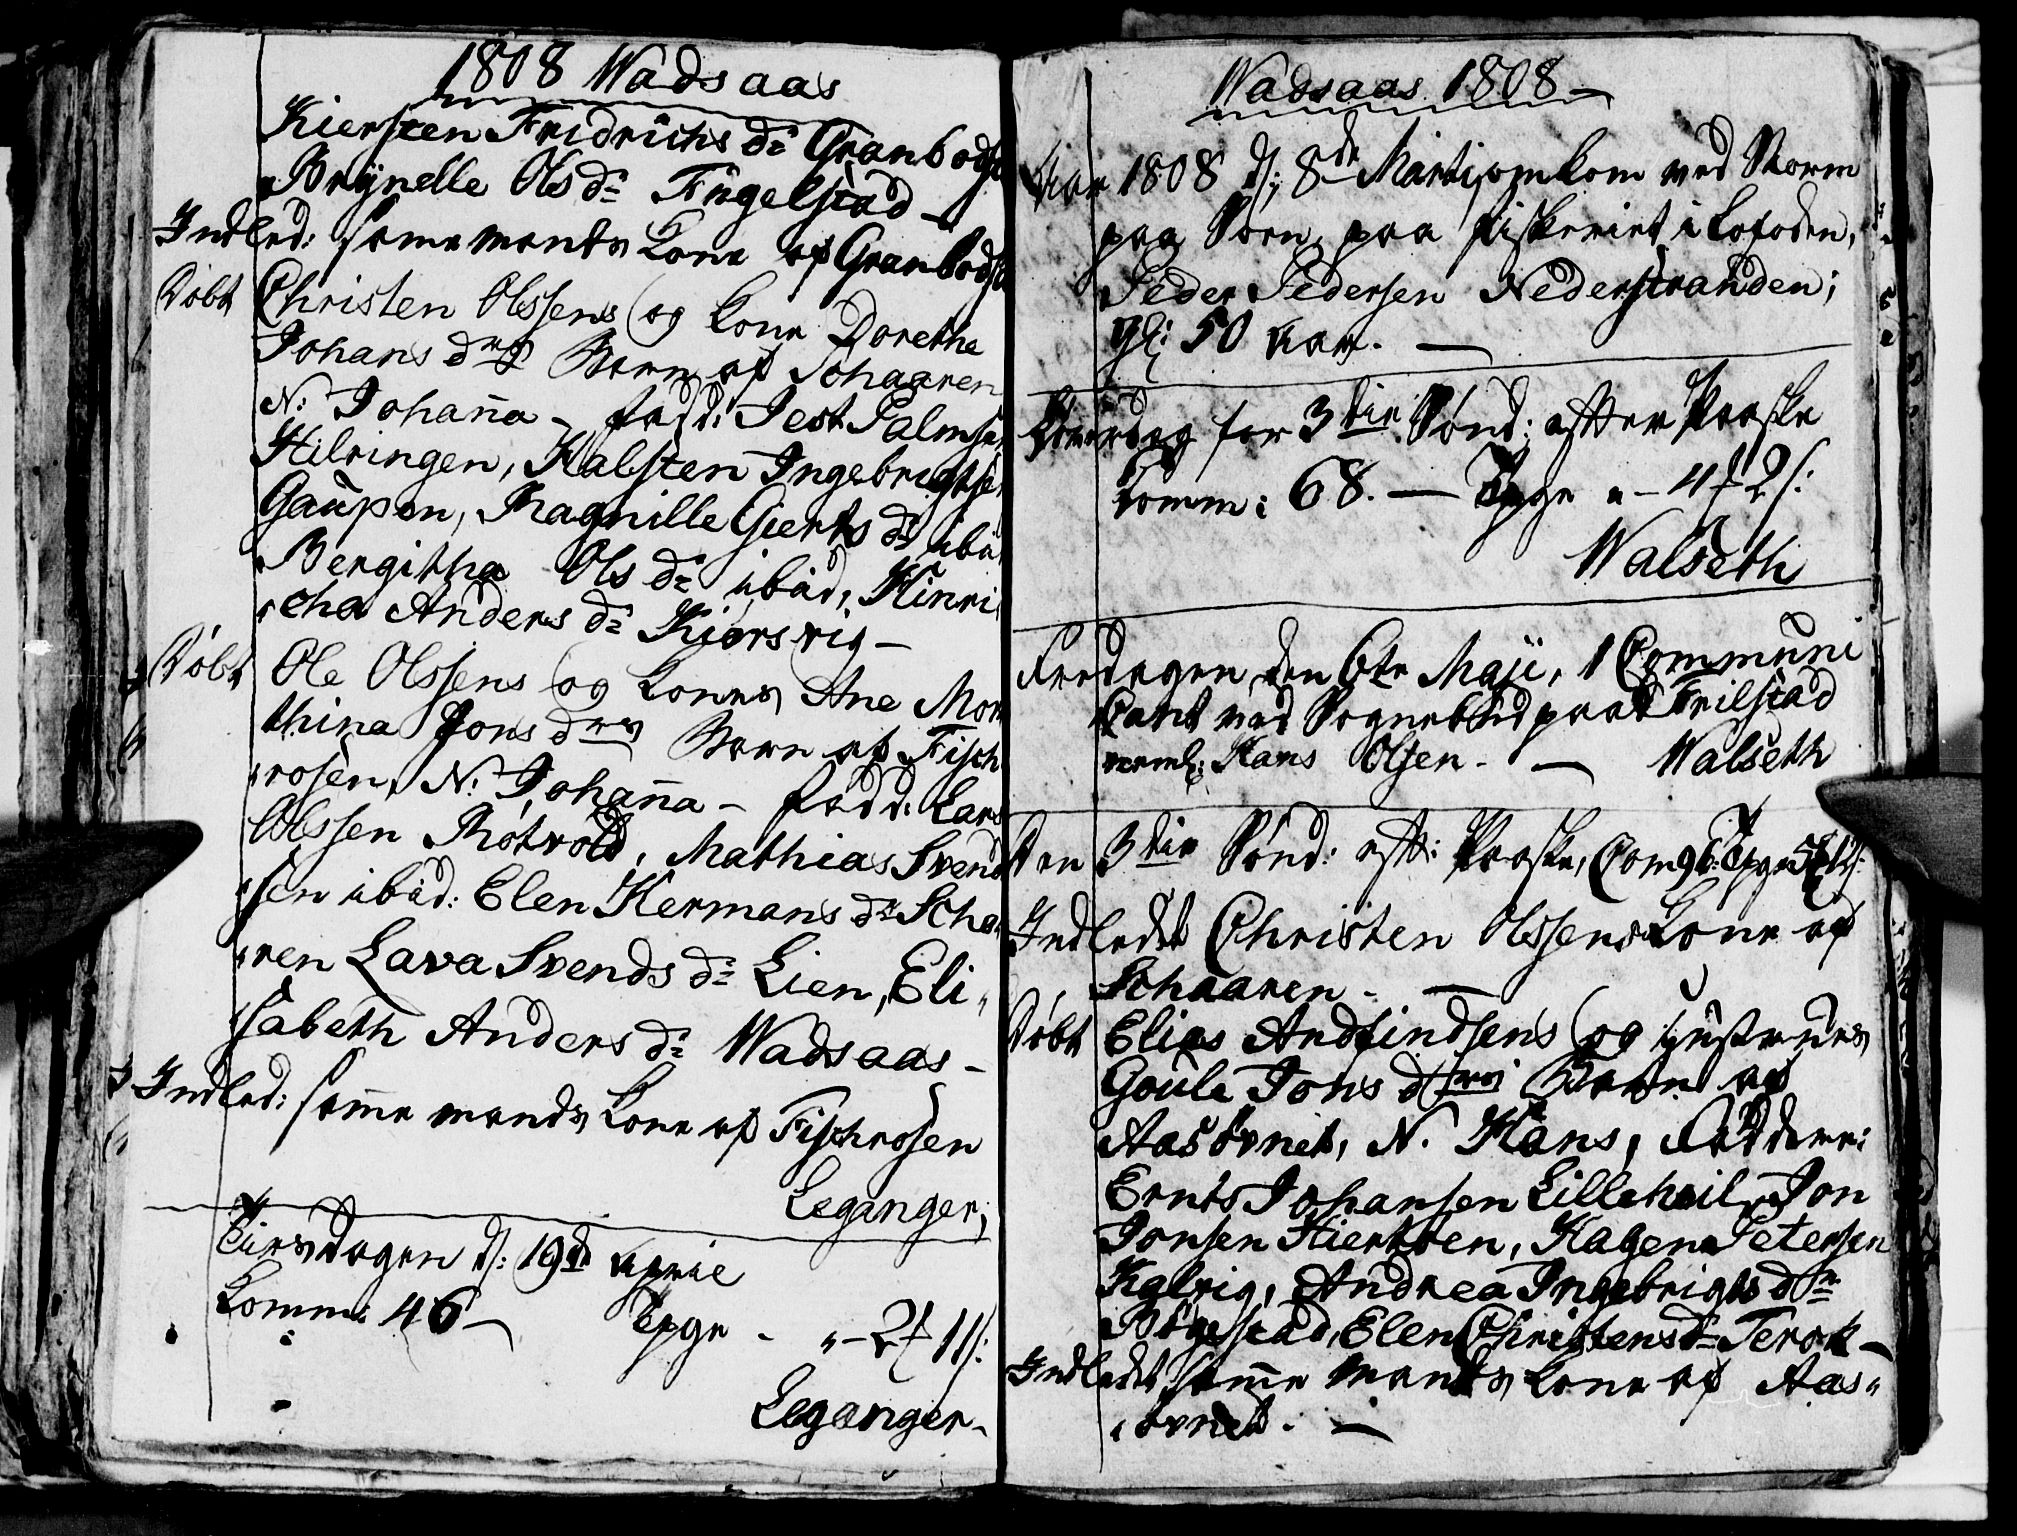 1808 Wadsaas
Kiersten Fridrichs dr Granbods
Brÿnelle Ols dr Fugelstad –
Indled: samme mands Kone af Granbods
Döbt Christen Olssens og Kone Dorethe
Johans drs Barn af Schaaren
N: Johaña – fadd: Jest Palmse
Hilringen, Halsten Ingebrigtse
Gaupen, Ragnille Gierts dr ibd
Bergitha Ols dr ibid, Hinri
cha Anders dr Kiørsvig –
Döbt Ole Olssens og Kones Ane Mor
thina Jons drs Barn af Fisch
rosen, N: Johaña – fadd: Lars
Olssen Røtvold, Mathias Svend
sen ibid: Elen Hermans dr Scha
ren Lava Svends dr Lien, Eli
sabeth Anders dr Wadsaas –
Indled: samme mands Kone af Fischrosen
Leganger,
Tirsdagen d: 19de April
Comm: 46 – Tpge – 2 f 11 s:
Leganger.
Wadsaas 1808 –
Aar 1808 d: 8de Marti omkom ved Storm
paa Søen, paa fiskeriet i Lofoden,
Peder Pedersen Nederstranden;
gl: 50 Aar. –
Løverdag for 3die Sønd: efter Paaske
Comm: 68. – Tpge – 4 f 2 s:
Walseth
Fredagen den 6te Maji, 1 Communi
cant ved Sognebud paa Trilstad
neml: Hans Olsen. – Walseth
Den 3die Sønd: eft: Paaske, Com 96: Tpge
Indledt Christen Olssens Kone af
Schaaren –
Döbt Elias Andfindsens og hustrues
Goule Jons drs Barn af
Aasövnet, N. Hans, Faddere:
Ernts Johansen Lilleheil, Jon
Jonsen Hiertöen, Hagen Petersen
Kalvig, Andrea Ingebrigts dr
Bogestad, Elen Christens dr Terak –
Indledt samme Mands Kone af Aas
övnet. –